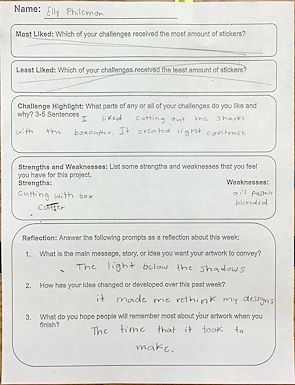 Name: Elly Philemon
Most Liked: Which of your challenges received the most amount of stickers?
Least Liked: Which of your challenges received the least amount of stickers?
Challenge Highlight: What parts of any or all of your challenges do you like and
why? 3-5 Sentences I liked cutting out the sharks
with the boxcutter. It created light contrast
Strengths and Weaknesses: List some strengths and weaknesses that you feel
you have for this project.
Strengths: Weaknesses:
Cutting with box oil pastels
cutter blended
Reflection: Answer the following prompts as a reflection about this week:
1. What is the main message, story, or idea you want your artwork to convey?
The light below the shadows
2. How has your idea changed or developed over this past week?
it made me rethink my designs
3. What do you hope people will remember most about your artwork when you
finish?
The time that it took to
make.